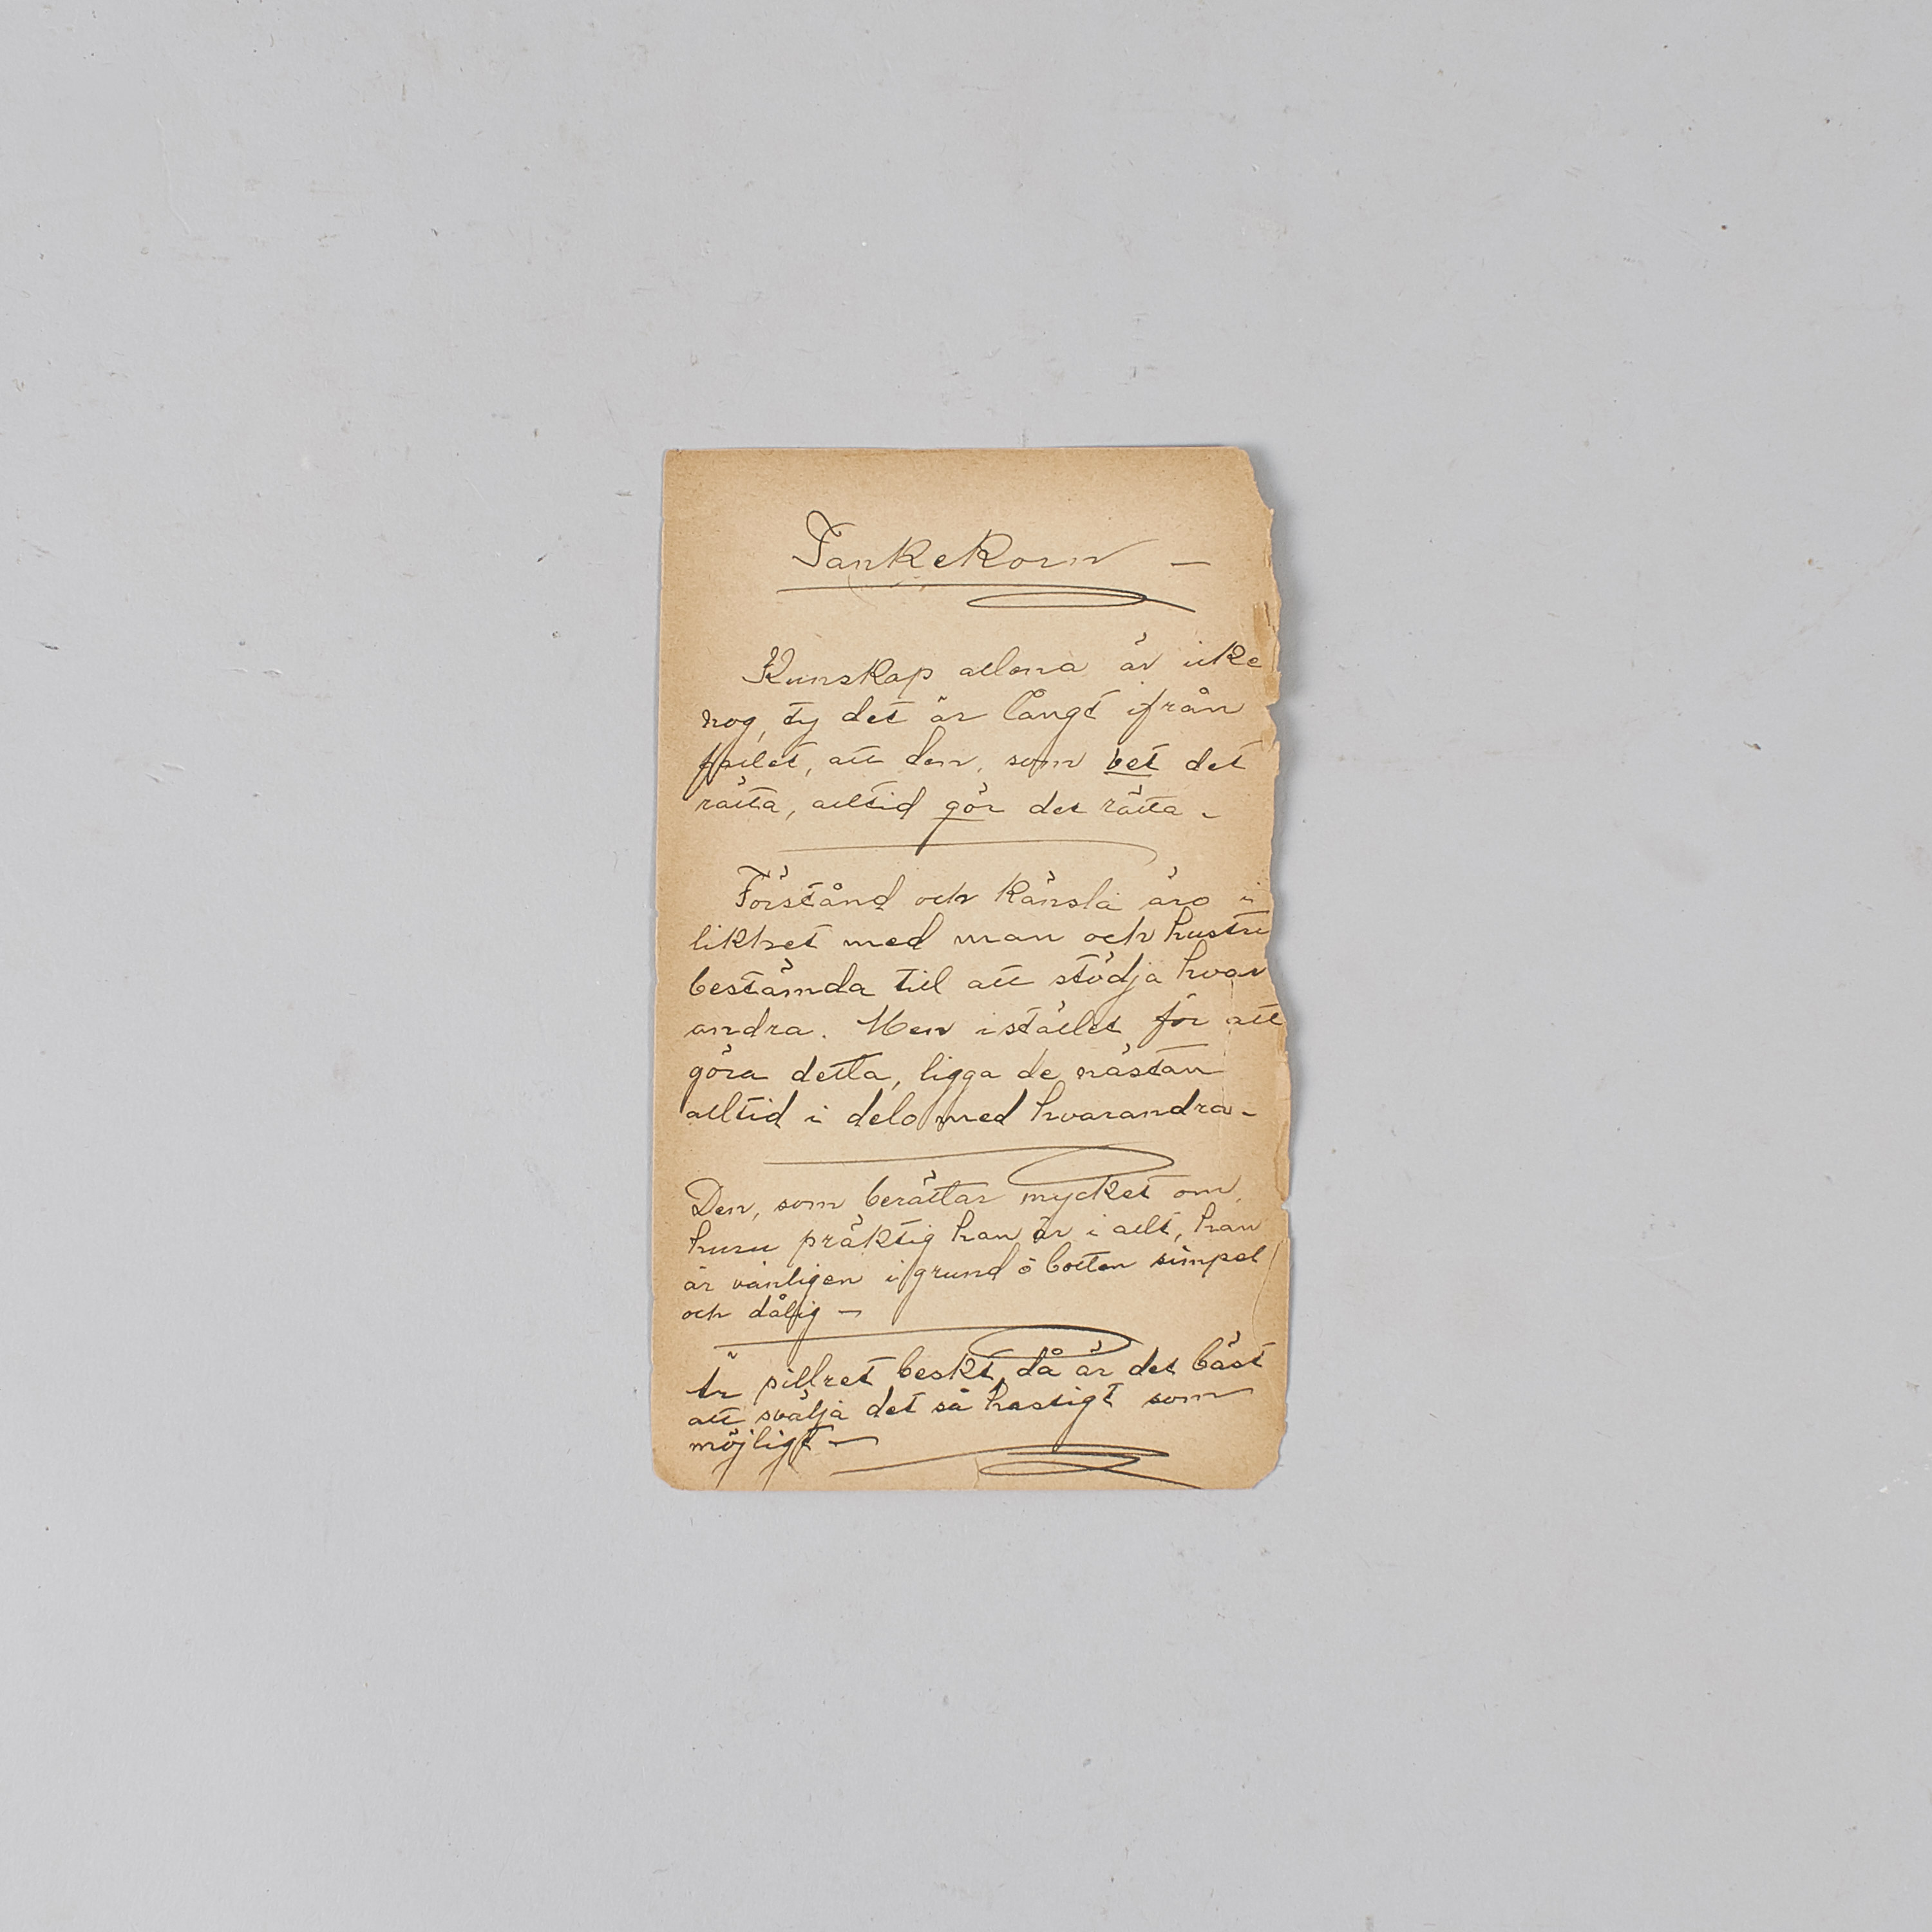 Tankekorn –
Kunskap allena är icke
nog, ty det är långt ifrån
fallet, att den, som vet det
rätta, alltid gör det rätta –
Förstånd och känsla äro i
likhet med man och hustru
bestämda till att stödja hvar
andra. Men istället för att
göra detta, ligga de nästan
alltid i delo med hvarandra –
Den, som berättar mycket om,
huru präktig han är i allt, han
är vanligen i grund o botten simpel
och dålig –
Är pillret beskt, då är det bäst
att svälja det så hastigt som
möjligt –